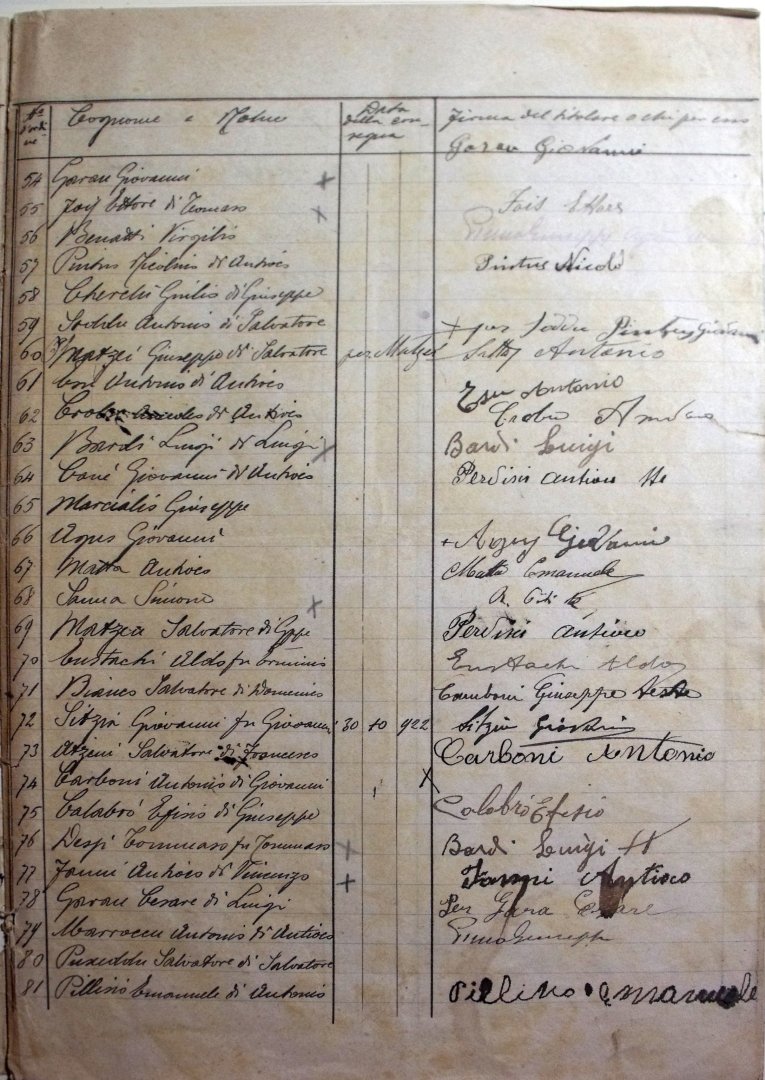 No d'ordine Cognome e Nome Data della consegna Firma del titolare o chi per esso
Garau Giovanni
54 Garau Giovanni +
55 Fois Ettore di Tommaso + Fois Ettore
56 Benatti Virgilio
57 Pintus Nicolino di Antioco Pintus Nicolò
58 Cherchi Giulio di Giuseppe
59 Soddu Antonio di Salvatore + per Soddu Giovanni
60 Matzei Giuseppe di Salvatore per Matzei Antonio
61 Antonio di Antioco Antonio
62 di Antioco
63 Bardi Luigi di Luigi + Bardi Luigi
64 Giovanni di Antioco Perdisci Antioco
65 Marcialis Giuseppe
66 Agus Giovanni + Giovanni
67 Matta Antioco Matta Emanuele
68 Sanna Simone +
69 Salvatore di Gppe Perdisci Antioco
70 Eustachi Aldo fu Erminio Eustachi Aldo
71 Bianco Salvatore di Domenico Camboni Giuseppe teste
72 Sitzia Giovanni fu Giovanni 30 10 922 Sitzia Giovanni
73 Atzeni Salvatore di Francesco Carboni Antonio
74 Carboni Antonio di Giovanni X
75 Calabrò Efisio di Giuseppe Calabrò Efisio
76 Despi Tommaso fu Tommaso + Bardi Luigi
77 Fanni Antioco di Vincenzo + Fanni Antioco
78 Garau Cesare di Luigi Per Gara Cesare
79 Marroccu Antonio di Antioco Giuseppe
80 Puxeddu Salvatore di Salvatore
81 Pillino Emanuele di Antonio Pillino Emanuele